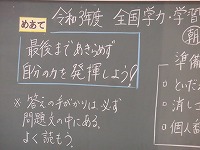 めあて
令和3年度 全国学力・学習
最後まであきらめず
自分の力を発揮しよう!
※答えの手がかりは必ず
問題文の中にある。
よく読もう。
朝
準備
・といだ
・消しゴ
・個人番